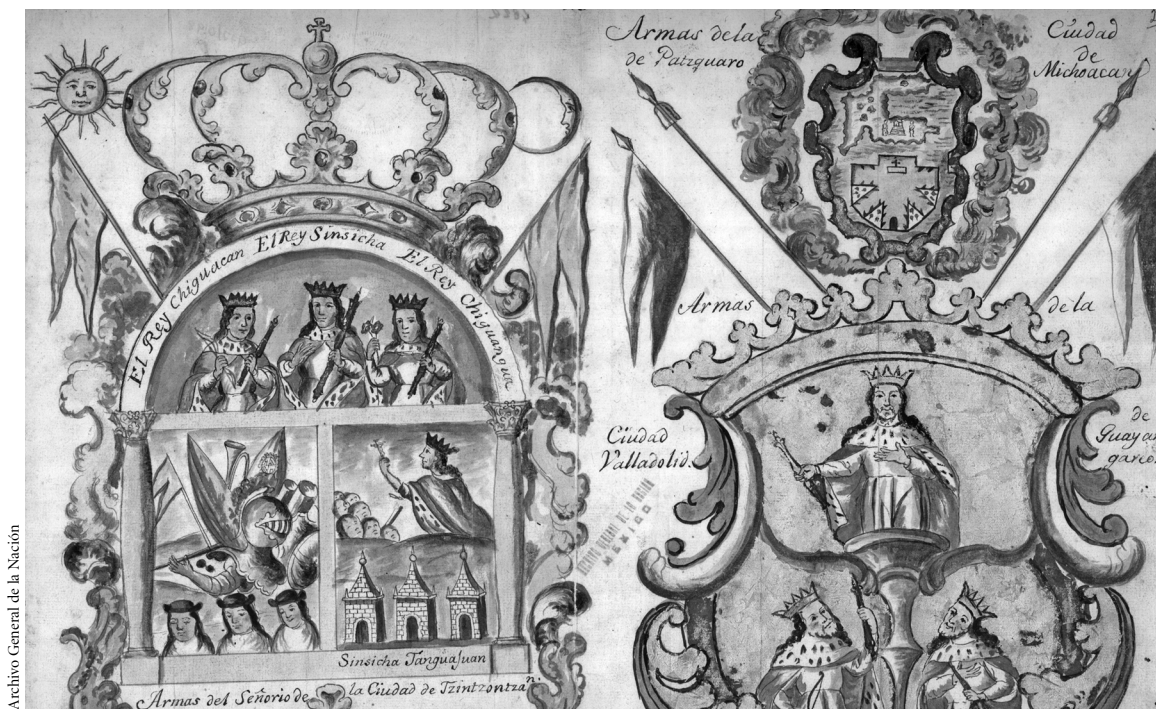 Archivo General de la Nación
El Rey Chiguacan El Rey Sinsicha El Rey Chiguangua
Sinsicha Tanguajuan
Armas del Señorio de la Ciudad de Tzintzontzan.
Armas de la Ciudad
de Patzquaro de
Michoacan
Armas de la
Ciudad de
Valladolid.